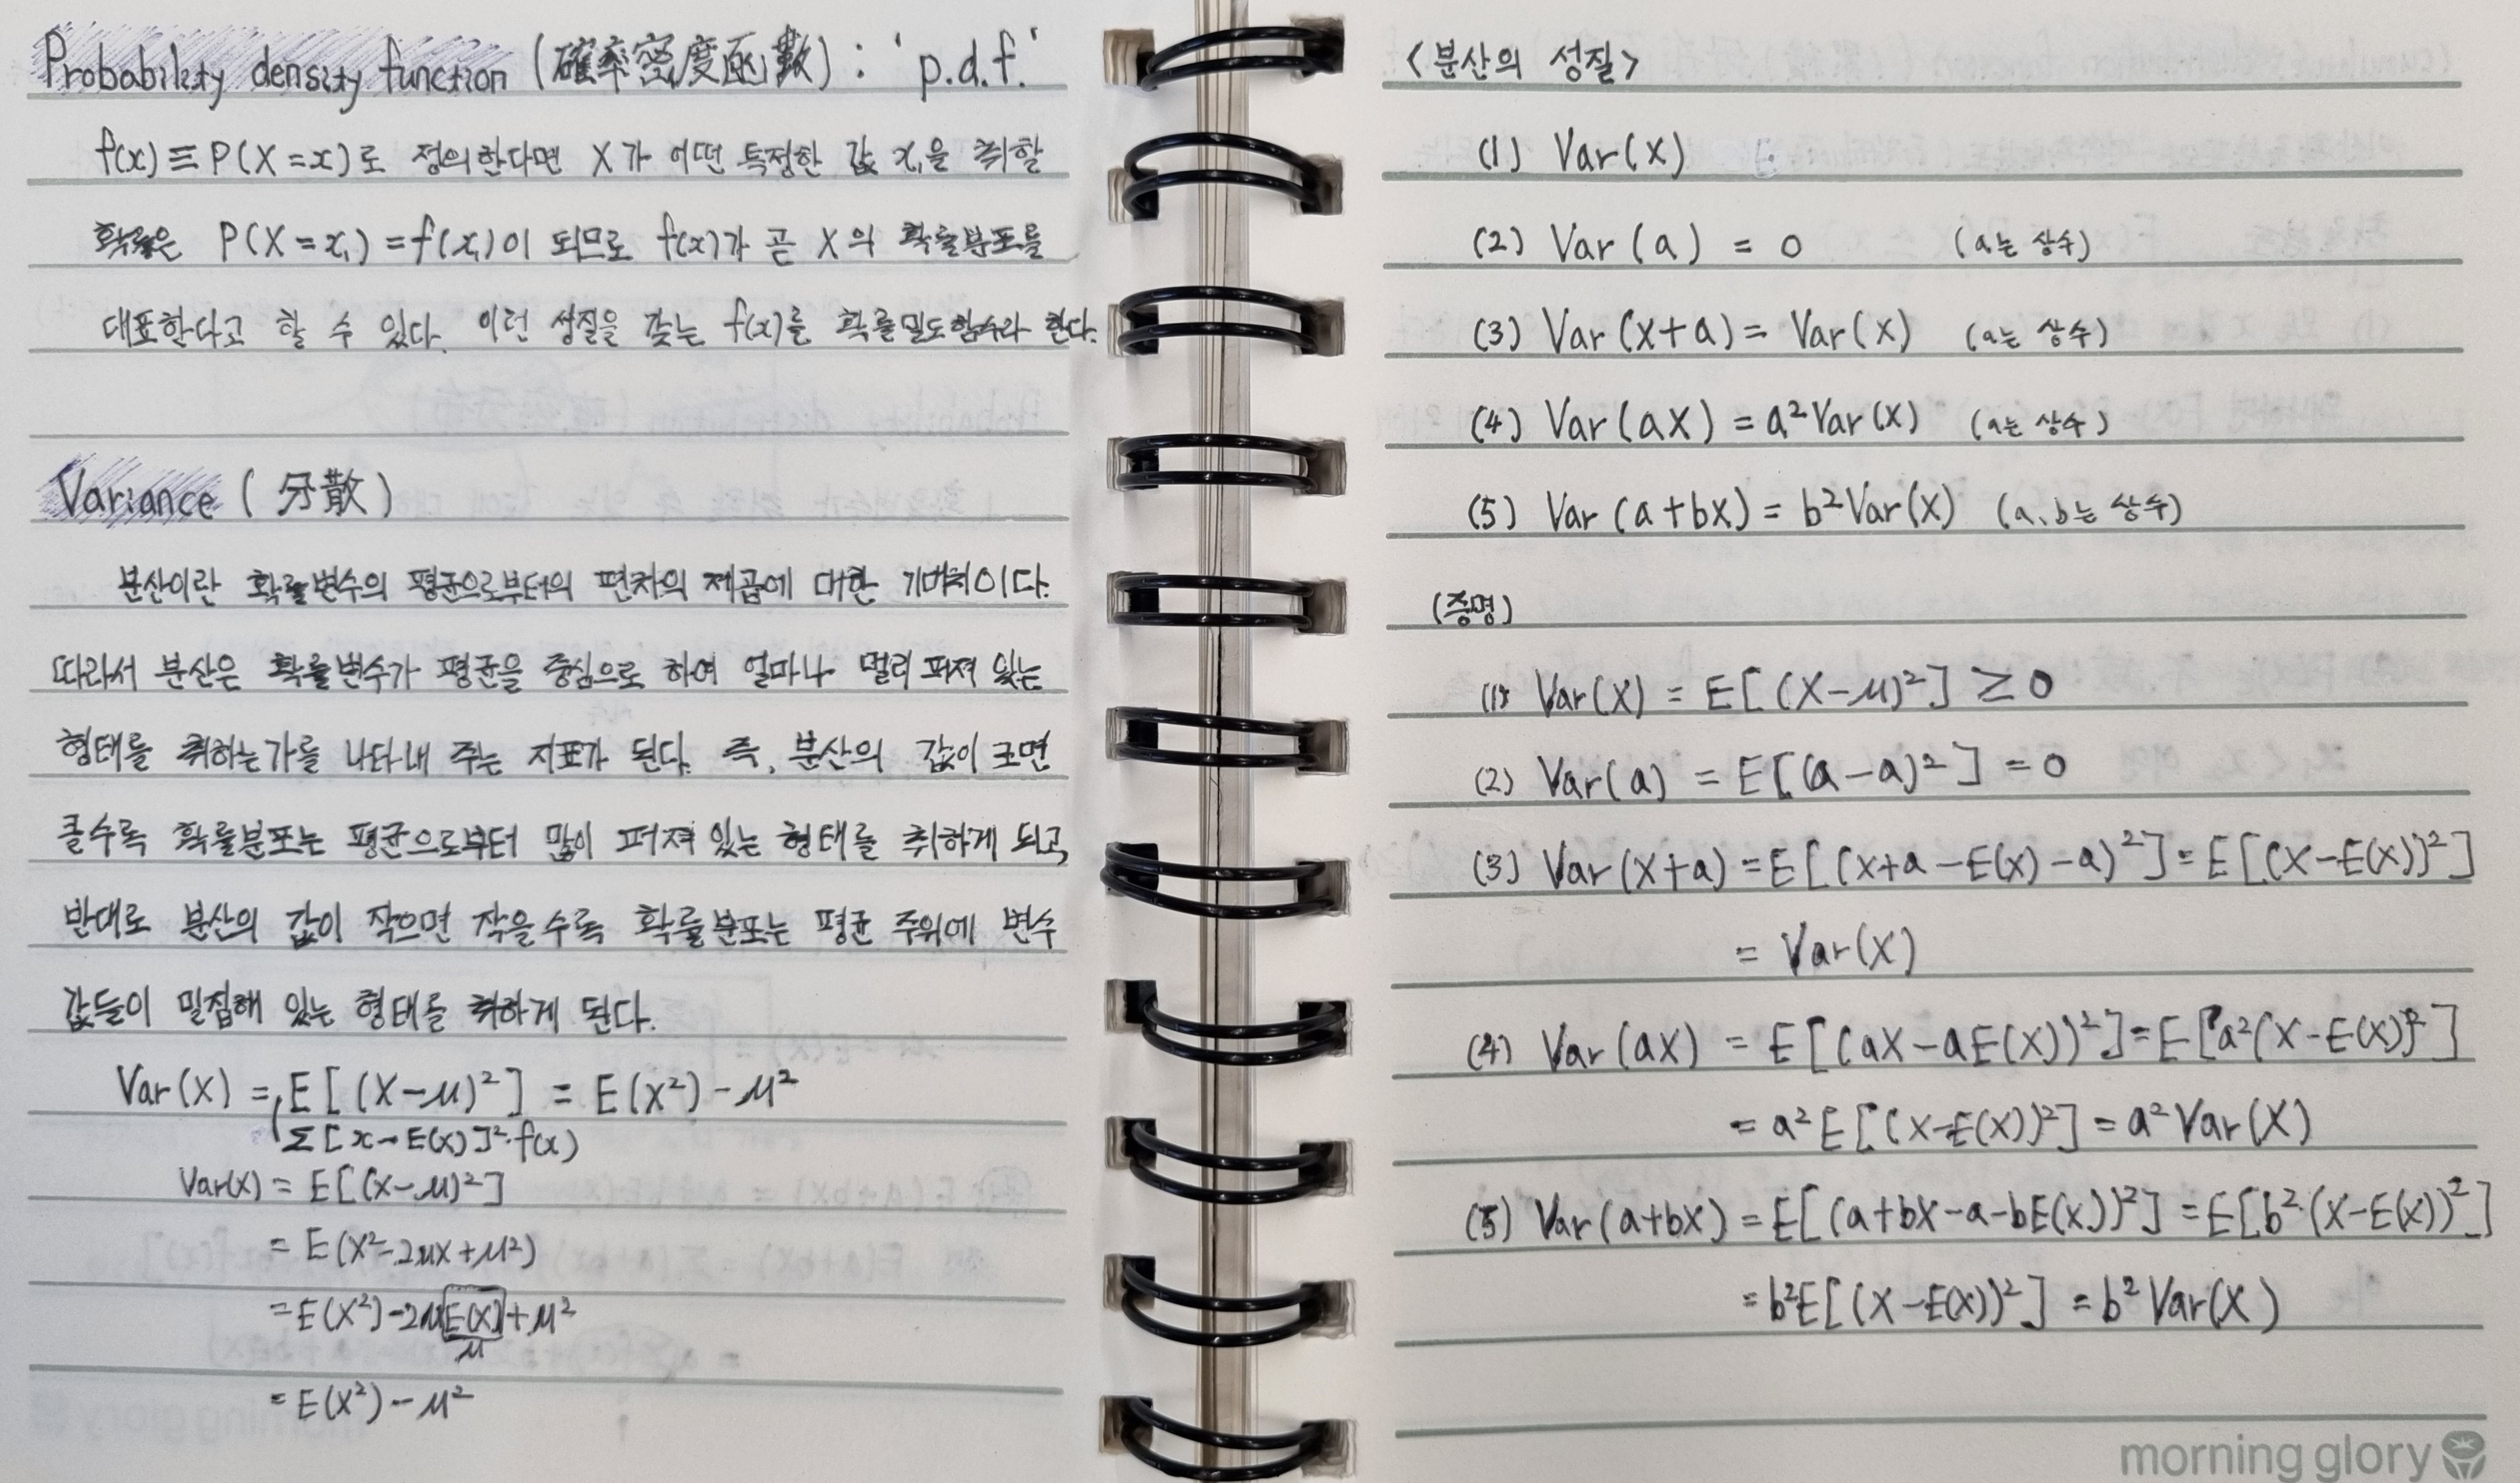 Probability density function (確率密度函數) : 'p.d.f.'
f(x) ≡ P(X = x)로 정의한다면 X가 어떤 특정한 값 x₁을 취할
확률은 P(X = x₁) = f(x₁)이 되므로 f(x)가 곧 X의 확률분포를
대표한다고 할 수 있다. 이런 성질을 갖는 f(x)를 확률밀도함수라 한다.
Variance (分散)
분산이란 확률변수의 평균으로부터의 편차의 제곱에 대한 기대치이다.
따라서 분산은 확률변수가 평균을 중심으로 하여 얼마나 멀리 퍼져 있는
형태를 취하는가를 나타내 주는 지표가 된다. 즉, 분산의 값이 크면
클수록 확률분포는 평균으로부터 많이 퍼져 있는 형태를 취하게 되고,
반대로 분산의 값이 작으면 작을수록 확률분포는 평균 주위에 변수
값들이 밀집해 있는 형태를 취하게 된다.
Var(X) = E[(X-μ)²] = E(X²) - μ²
Σ[x - E(X)]²·f(x)
Var(X) = E[(X-μ)²]
= E(X²-2μX+μ²)
= E(X²)-2μE(X)+μ²
μ
= E(X²) - μ²
<분산의 성질>
(1) Var(X)
(2) Var(a) = 0 (a는 상수)
(3) Var(X+a) = Var(X) (a는 상수)
(4) Var(aX) = a²Var(X) (a는 상수)
(5) Var(a+bX) = b²Var(X) (a, b는 상수)
(증명)
(1) Var(X) = E[(X-μ)²] ≥ 0
(2) Var(a) = E[(a-a)²] = 0
(3) Var(X+a) = E[(X+a-E(X)-a)²] = E[(X-E(X))²]
= Var(X)
(4) Var(aX) = E[(aX-aE(X))²] = E[a²(X-E(X))²]
= a²E[(X-E(X))²] = a²Var(X)
(5) Var(a+bX) = E[(a+bX-a-bE(X))²] = E[b²·(X-E(X))²]
= b²E[(X-E(X))²] = b²Var(X)
morning glory